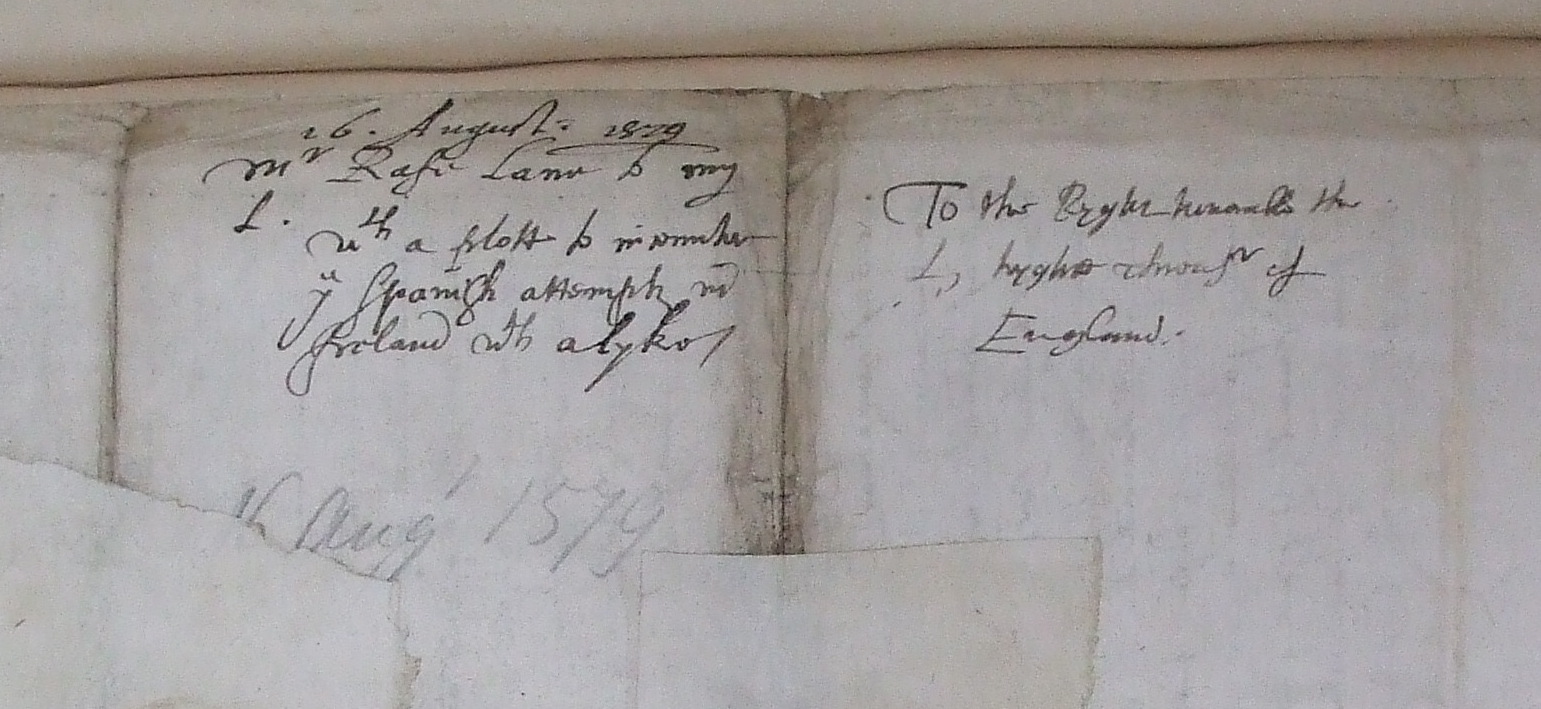 16. August: 1579
Mr Rafe Lane to my
L.
wth a plott to incounter
ye Spanish attempts in
Ireland wth alyke
16 Aug 1579
To the Ryght honorable the
L, hyghe thresr of
England.